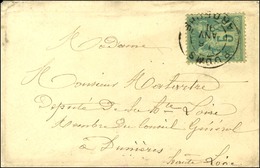 Madame
Monsieur Malartre
Député de la Hte Loire
Membre du Conseil Général
à Dunières
Haute Loire